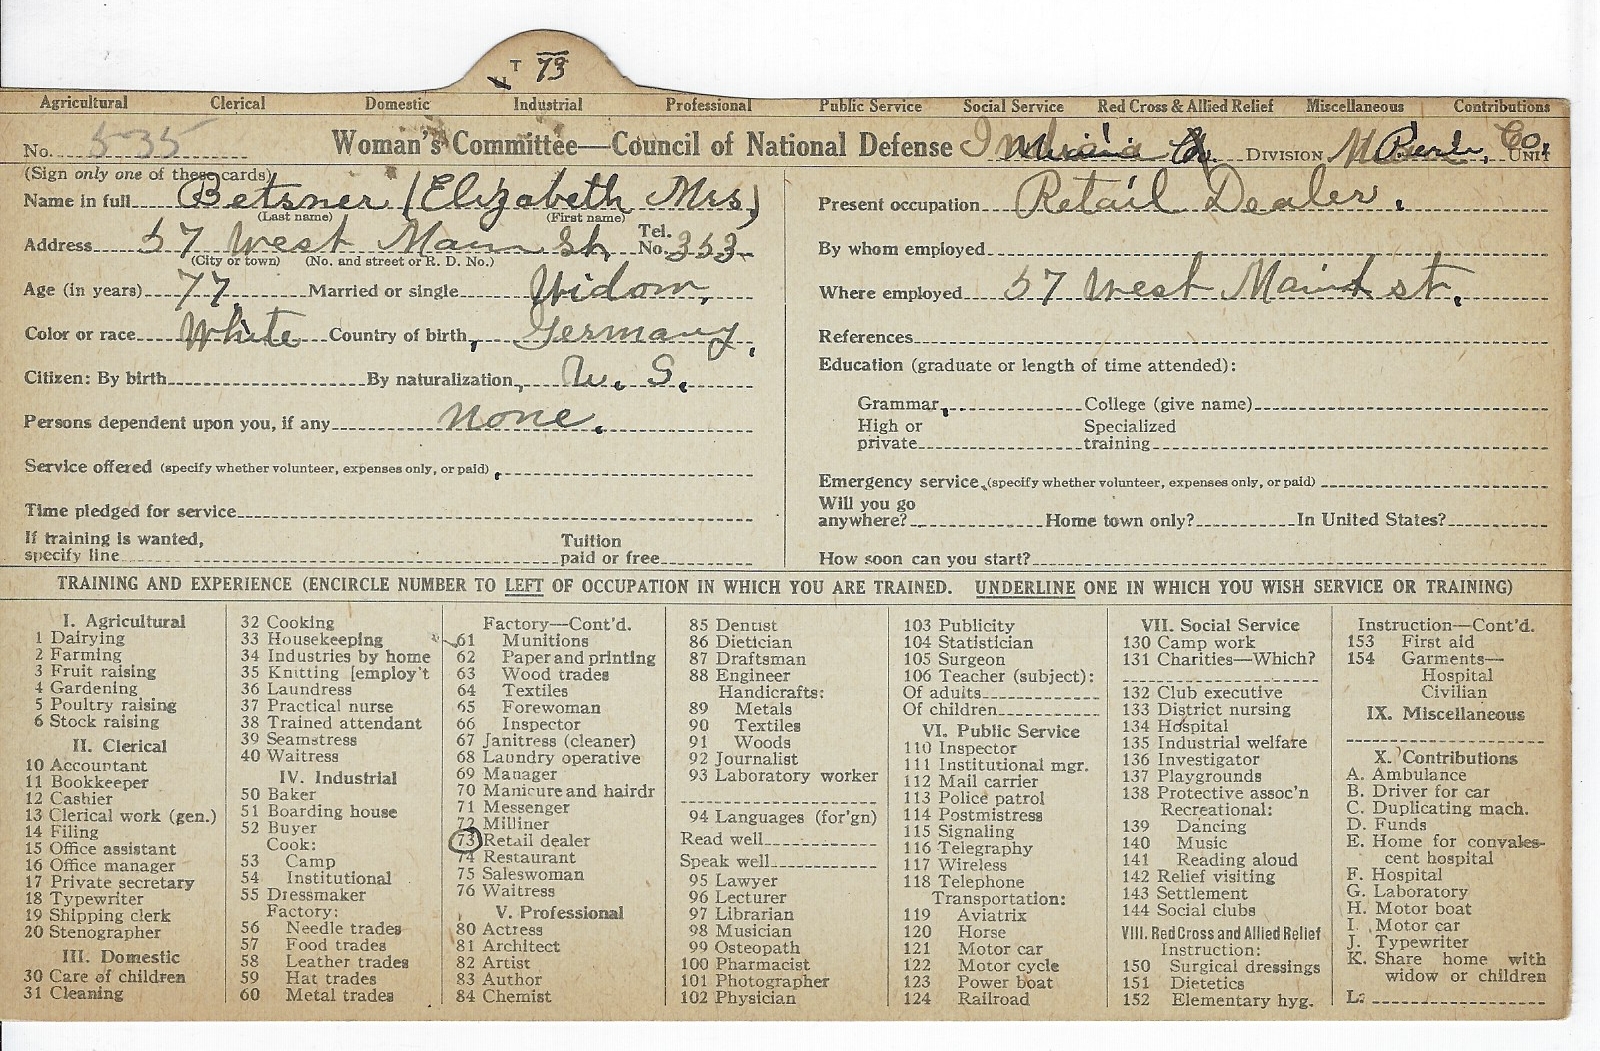 T 73
Agricultural Clerical Domestic Industrial Professional Public Service Social Service Red Cross & Allied Relief Miscellaneous Contributions
No. 535 Woman's Committee—Council of National Defense Indiana DIVISION Co. UNIT
(Sign only one of these cards)
Name in full Betsner (Elizabeth Mrs)
(Last name) (First name)
Address 57 West Main St. Tel. No. 353
(City or town) (No. and street or R. D. No.)
Age (in years) 77 Married or single Widow,
Color or race White Country of birth, Germany,
Citizen: By birth By naturalization, U. S.
Persons dependent upon you, if any none.
Service offered (specify whether volunteer, expenses only, or paid)
Time pledged for service
If training is wanted, specify line Tuition paid or free
Present occupation Retail Dealer.
By whom employed
Where employed 57 West Main st.
References
Education (graduate or length of time attended):
Grammar College (give name)
High or private Specialized training
Emergency service (specify whether volunteer, expenses only, or paid)
Will you go anywhere? Home town only? In United States?
How soon can you start?
TRAINING AND EXPERIENCE (ENCIRCLE NUMBER TO LEFT OF OCCUPATION IN WHICH YOU ARE TRAINED. UNDERLINE ONE IN WHICH YOU WISH SERVICE OR TRAINING)
I. Agricultural
1 Dairying
2 Farming
3 Fruit raising
4 Gardening
5 Poultry raising
6 Stock raising
II. Clerical
10 Accountant
11 Bookkeeper
12 Cashier
13 Clerical work (gen.)
14 Filing
15 Office assistant
16 Office manager
17 Private secretary
18 Typewriter
19 Shipping clerk
20 Stenographer
III. Domestic
30 Care of children
31 Cleaning
32 Cooking
33 Housekeeping
34 Industries by home
35 Knitting [employ't
36 Laundress
37 Practical nurse
38 Trained attendant
39 Seamstress
40 Waitress
IV. Industrial
50 Baker
51 Boarding house
52 Buyer
Cook:
53 Camp
54 Institutional
55 Dressmaker
Factory:
56 Needle trades
57 Food trades
58 Leather trades
59 Hat trades
60 Metal trades
Factory—Cont'd.
61 Munitions
62 Paper and printing
63 Wood trades
64 Textiles
65 Forewoman
66 Inspector
67 Janitress (cleaner)
68 Laundry operative
69 Manager
70 Manicure and hairdr
71 Messenger
72 Milliner
73 Retail dealer
74 Restaurant
75 Saleswoman
76 Waitress
V. Professional
80 Actress
81 Architect
82 Artist
83 Author
84 Chemist
85 Dentist
86 Dietician
87 Draftsman
88 Engineer
Handicrafts:
89 Metals
90 Textiles
91 Woods
92 Journalist
93 Laboratory worker
94 Languages (for'gn)
Read well
Speak well
95 Lawyer
96 Lecturer
97 Librarian
98 Musician
99 Osteopath
100 Pharmacist
101 Photographer
102 Physician
103 Publicity
104 Statistician
105 Surgeon
106 Teacher (subject):
Of adults
Of children
VI. Public Service
110 Inspector
111 Institutional mgr.
112 Mail carrier
113 Police patrol
114 Postmistress
115 Signaling
116 Telegraphy
117 Wireless
118 Telephone
Transportation:
119 Aviatrix
120 Horse
121 Motor car
122 Motor cycle
123 Power boat
124 Railroad
VII. Social Service
130 Camp work
131 Charities—Which?
132 Club executive
133 District nursing
134 Hospital
135 Industrial welfare
136 Investigator
137 Playgrounds
138 Protective assoc'n
Recreational:
139 Dancing
140 Music
141 Reading aloud
142 Relief visiting
143 Settlement
144 Social clubs
VIII. Red Cross and Allied Relief
Instruction:
150 Surgical dressings
151 Dietetics
152 Elementary hyg.
Instruction—Cont'd.
153 First aid
154 Garments—
Hospital
Civilian
IX. Miscellaneous
X. Contributions
A. Ambulance
B. Driver for car
C. Duplicating mach.
D. Funds
E. Home for convales-
cent hospital
F. Hospital
G. Laboratory
H. Motor boat
I. Motor car
J. Typewriter
K. Share home with
widow or children
L.